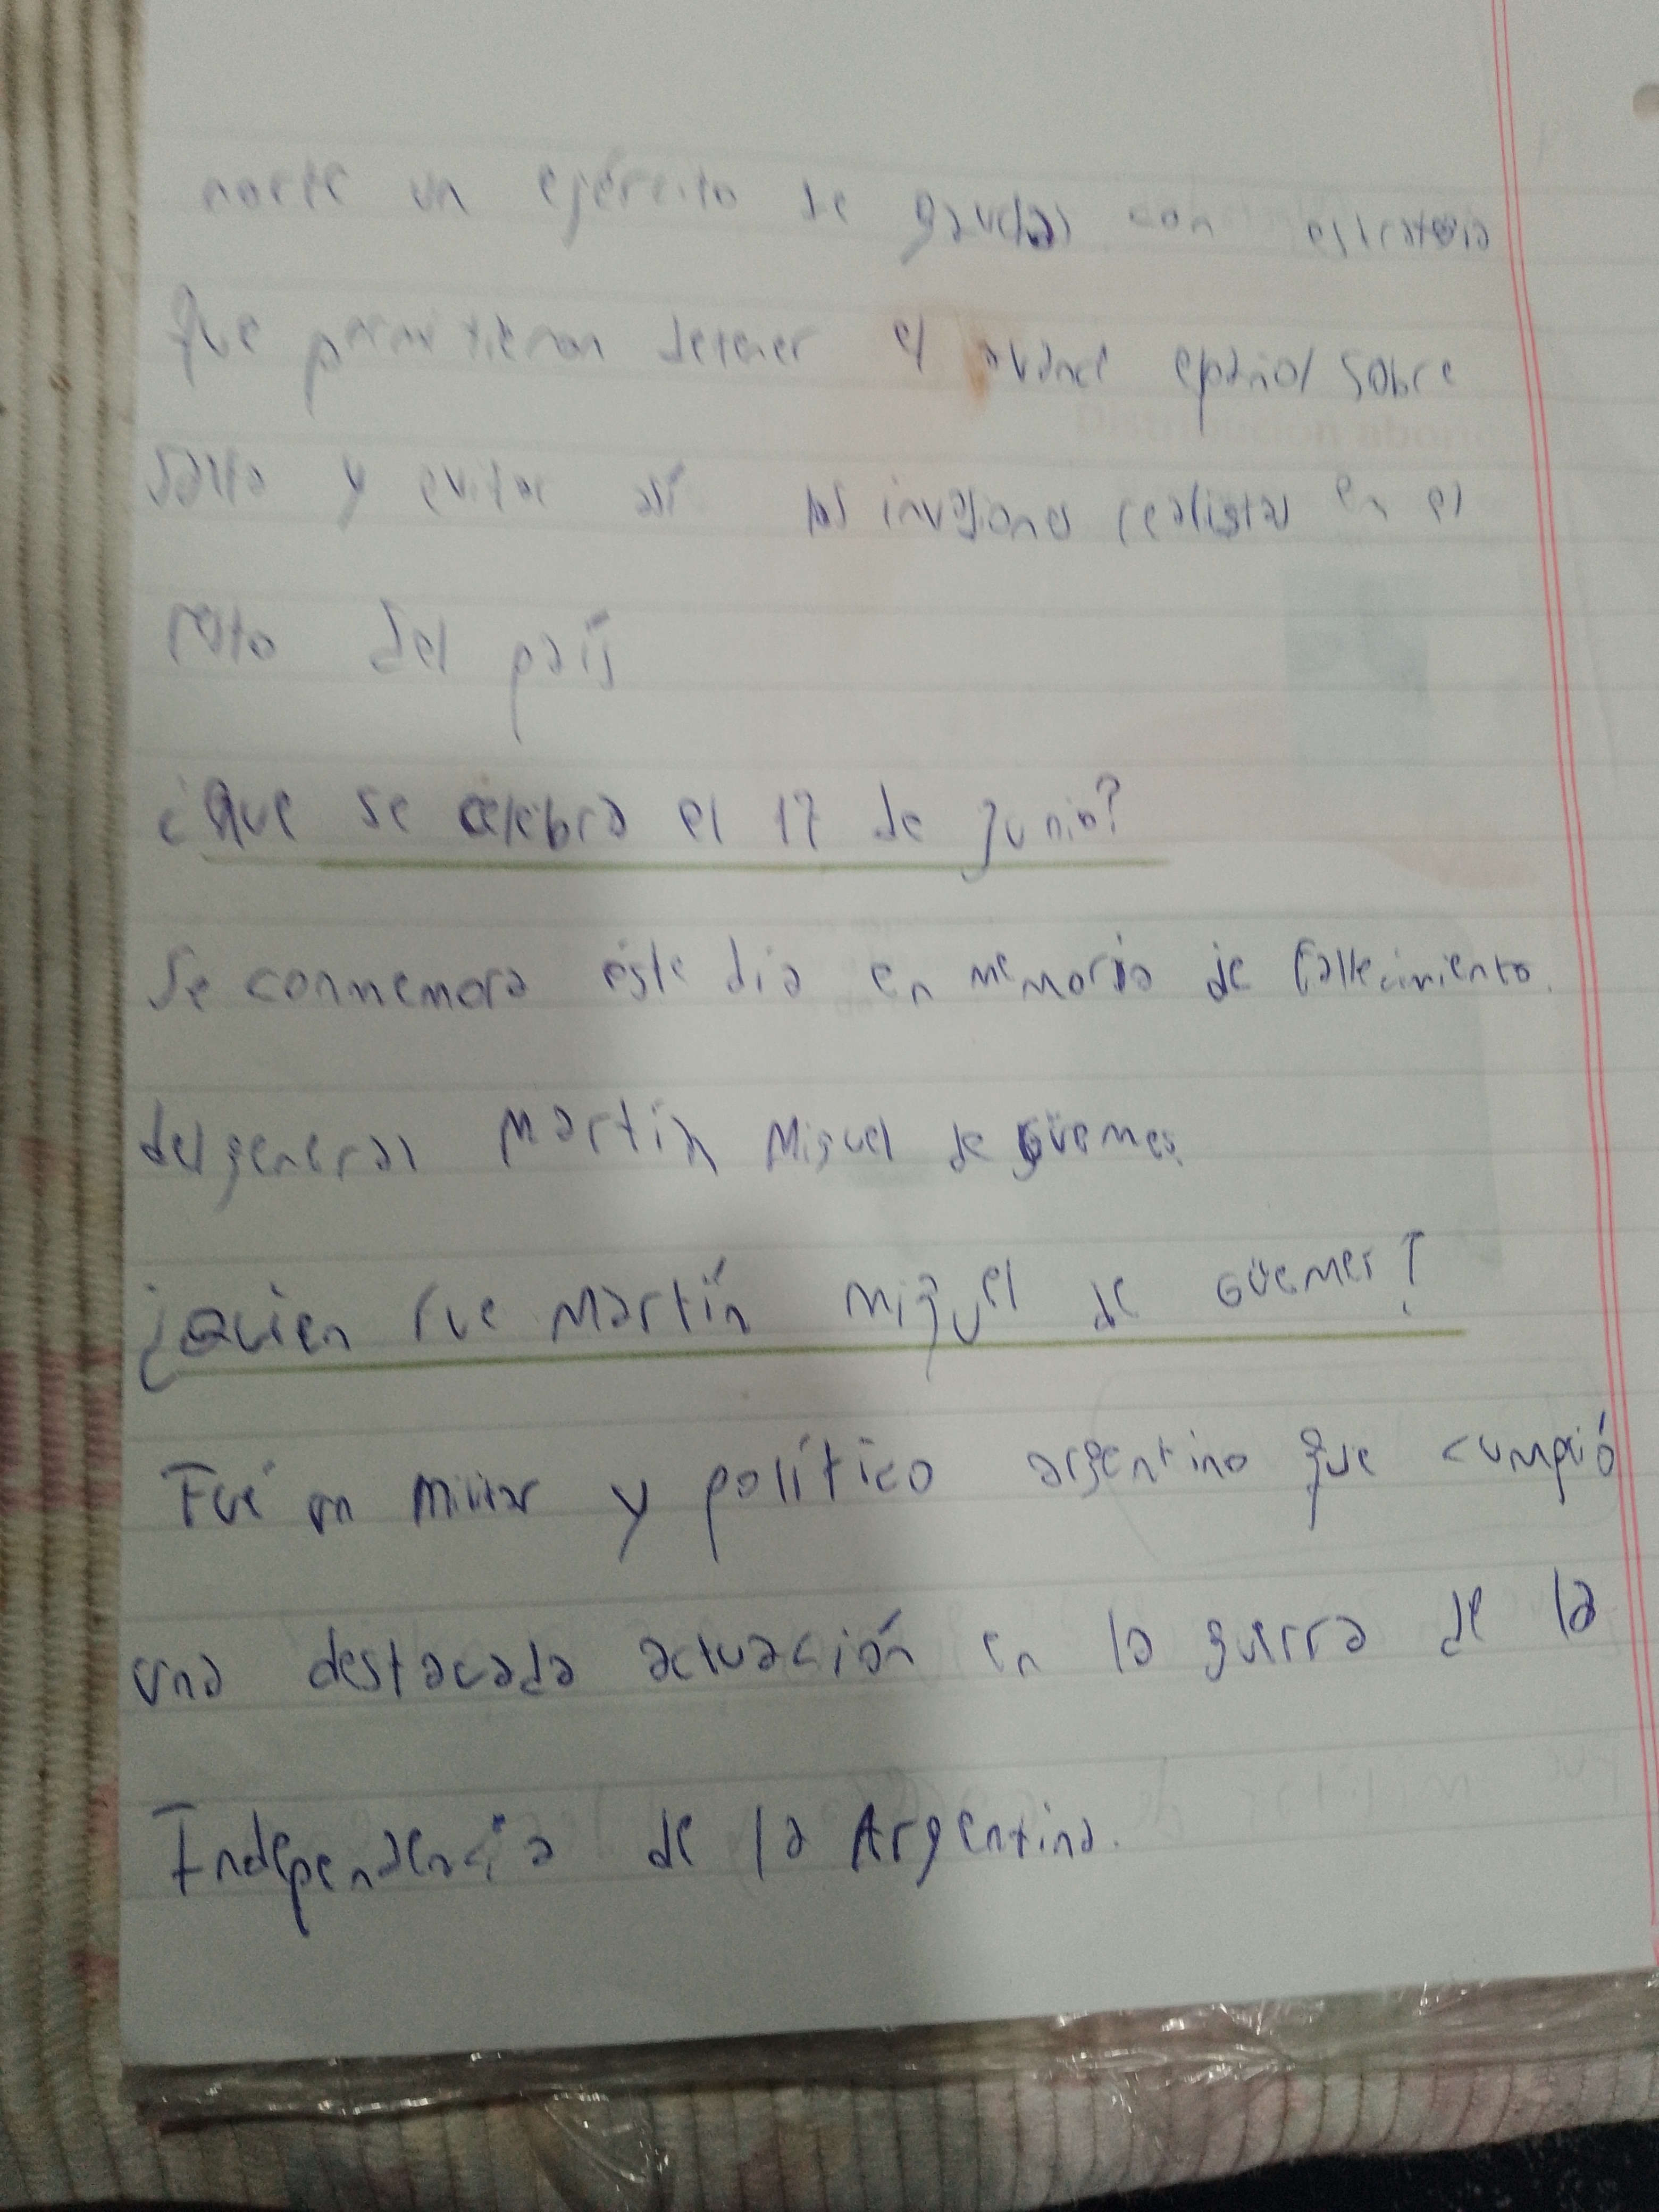 norte un ejército de gauchos con estrategia
que permitieron detener el avance epañol sobre
Salta y evitar así las invasiones realistas en el
resto del país
¿Que se celebra el 17 de junio?
Se conmemora éste día en memoria de fallecimiento.
del general Martín Miguel de Güemes.
¿Quien fue Martín Miguel de Güemes?
Fué un militar y político argentino que cumplió
una destacada actuación en la guerra de la
Independencia de la Argentina.